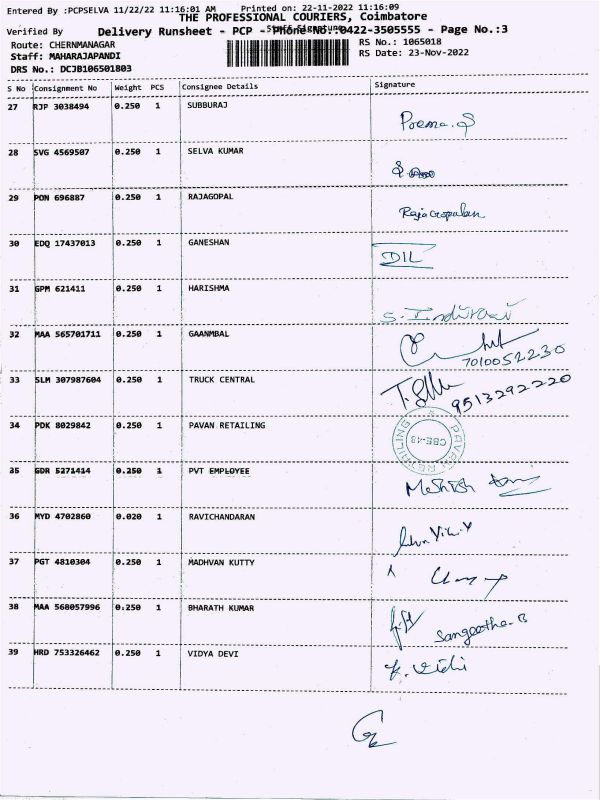 Entered By :PCPSELVA 11/22/22 11:16:01 AM Printed on: 22-11-2022 11:16:09
THE PROFESSIONAL COURIERS, Coimbatore
Staff Signature
Verified By Delivery Runsheet - PCP - Phone No.:0422-3505555 - Page No.:3
Route: CHERNMANAGAR RS No.: 1065018
Staff: MAHARAJAPANDI RS Date: 23-Nov-2022
DRS No.: DCJB106501803
S No Consignment No Weight PCS Consignee Details Signature
27 RJP 3038494 0.250 1 SUBBURAJ Poema.S
28 SVG 4569507 0.250 1 SELVA KUMAR
29 PON 696887 0.250 1 RAJAGOPAL Rajagopalan
30 EDQ 17437013 0.250 1 GANESHAN DIL
31 GPM 621411 0.250 1 HARISHMA S. Indirani
32 MAA 565701711 0.250 1 GAANMBAL 7010052230
33 SLM 307987604 0.250 1 TRUCK CENTRAL 9513292220
34 PDK 8029842 0.250 1 PAVAN RETAILING PAVAN RETAILING CBE-43
35 GDR 5271414 0.250 1 PVT EMPLOYEE
36 MYD 4702860 0.020 1 RAVICHANDRAN
37 PGT 4810304 0.250 1 MADHVAN KUTTY
38 MAA 568057996 0.250 1 BHARATH KUMAR Sangeetha.B
39 HRD 753326462 0.250 1 VIDYA DEVI